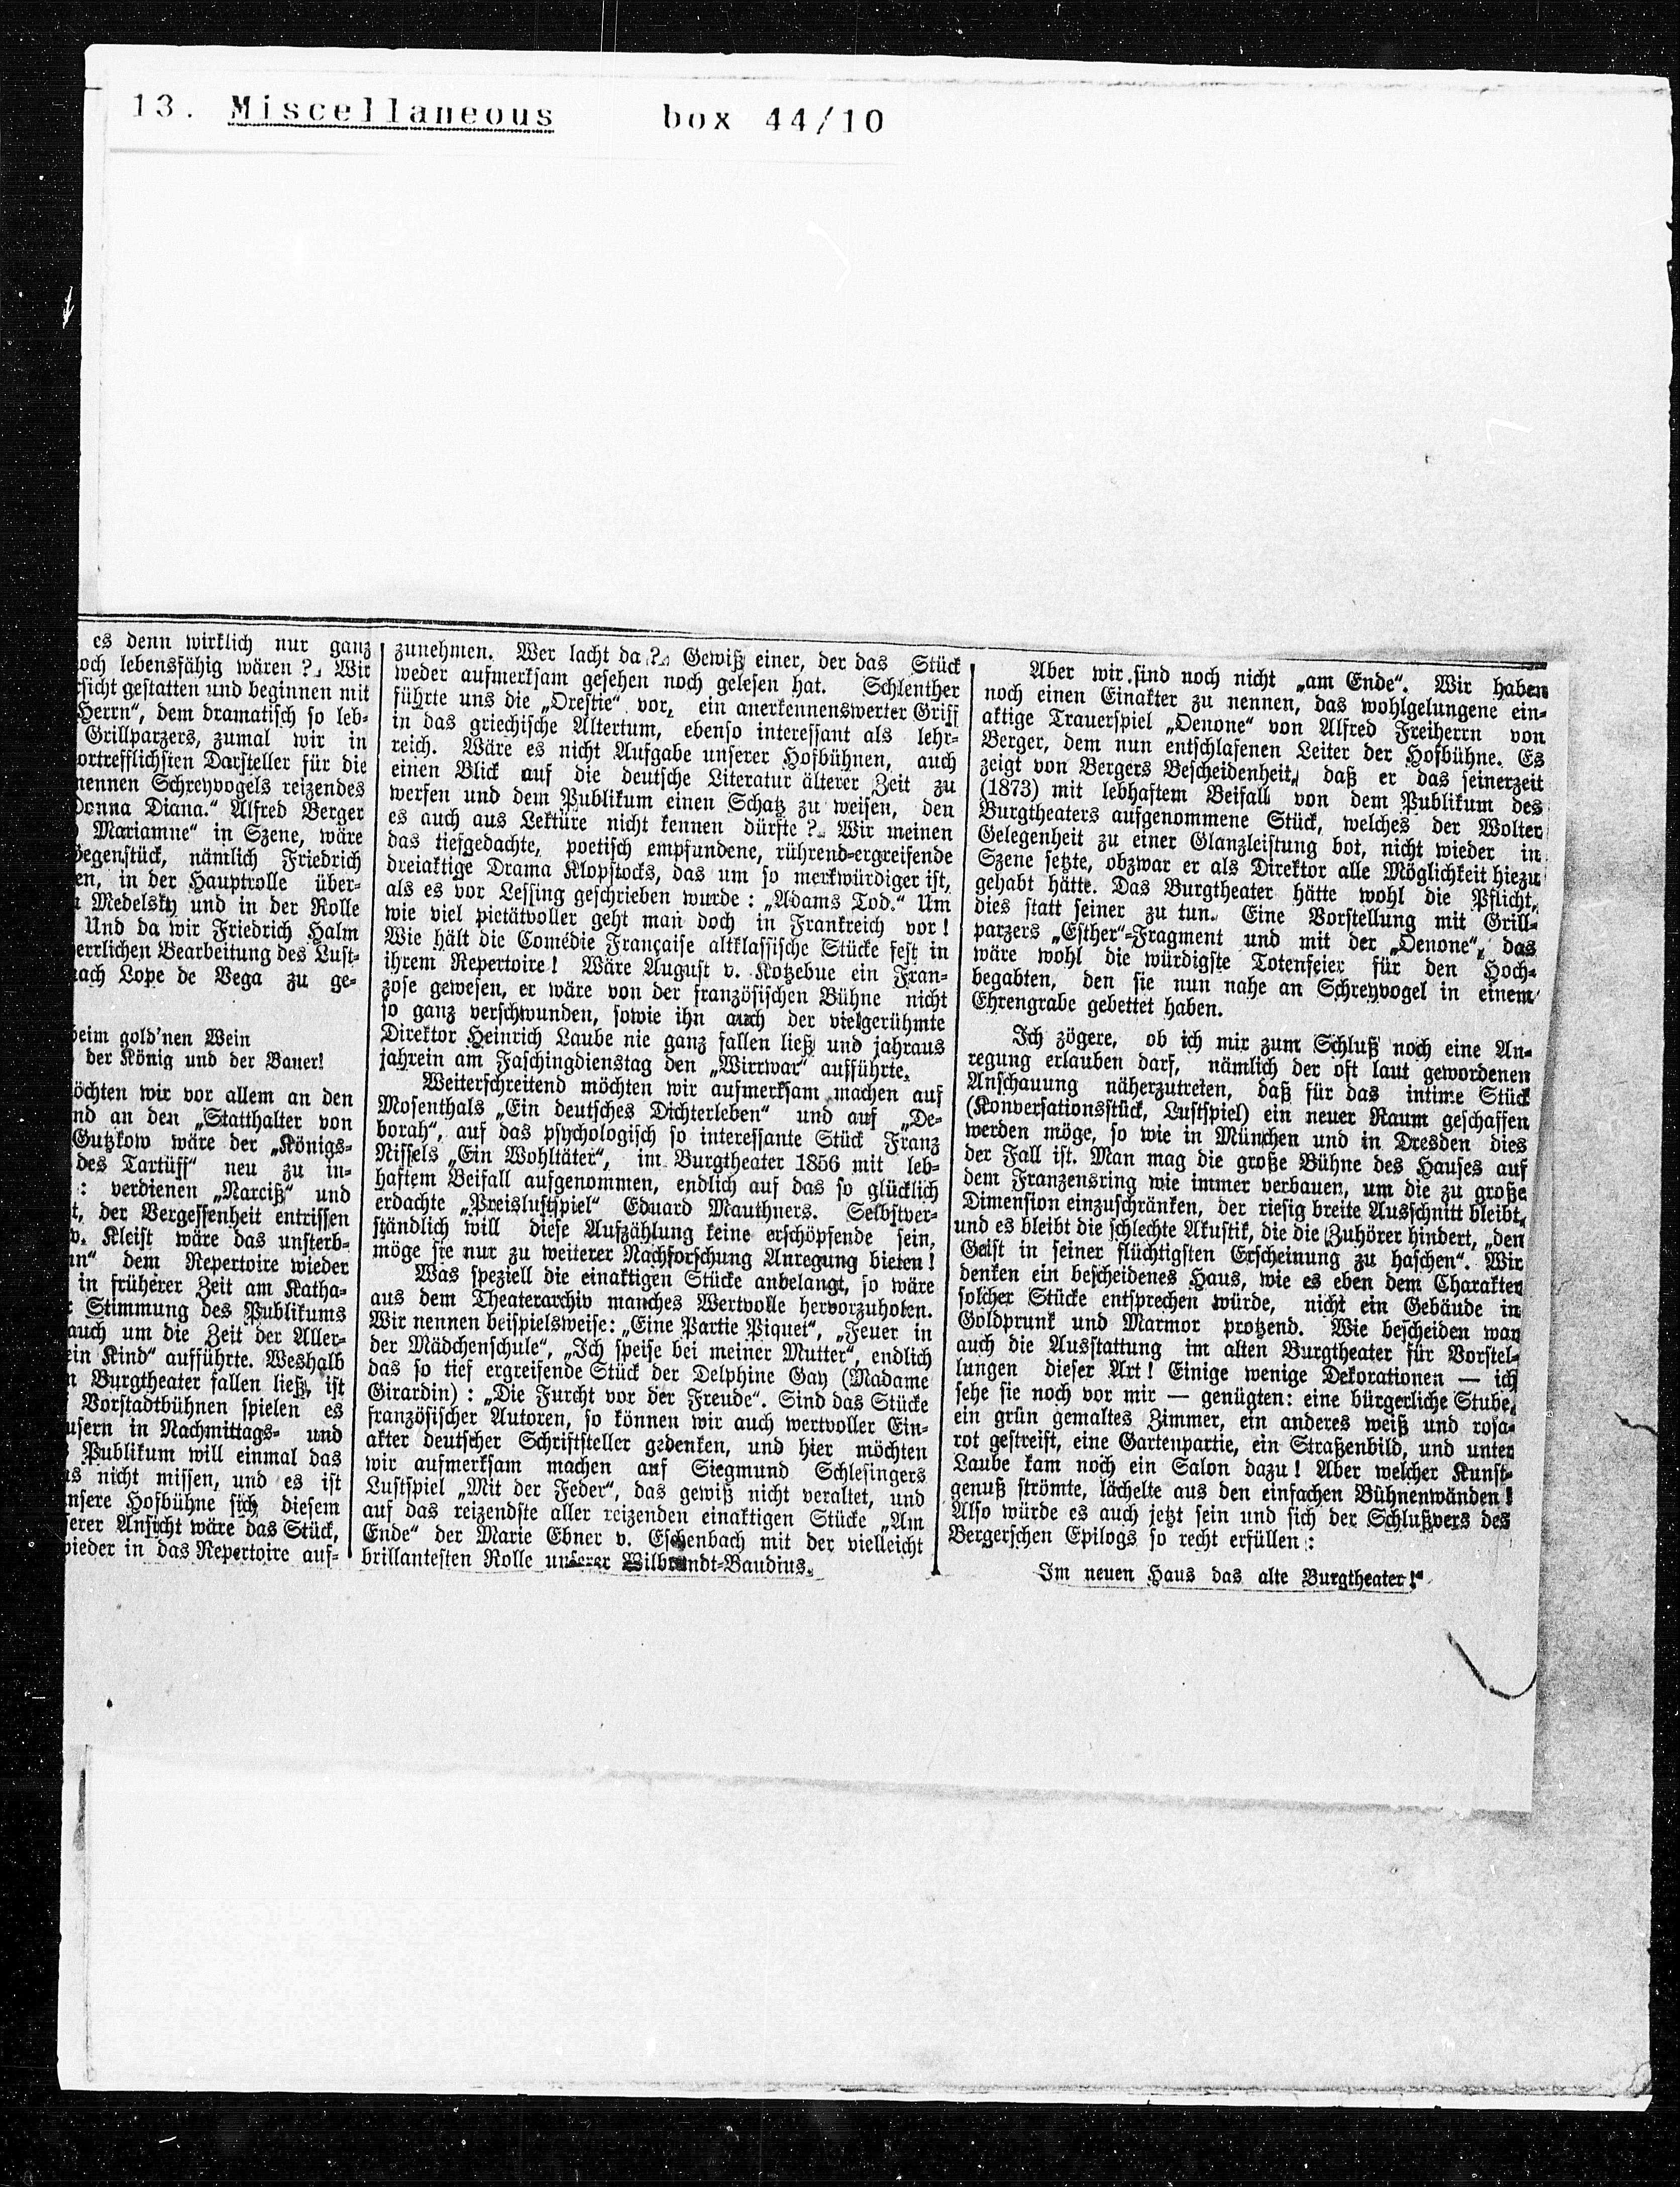 13. Miscellaneous box 44/10
es denn wirklich nur ganz
och lebensfähig wären? Wir
sicht gestatten und beginnen mit
Herrn“, dem dramatisch so leb-
Grillparzers, zumal wir in
ortrefflichsten Darsteller für die
nennen Schreyvogels reizendes
Donna Diana.“ Alfred Berger
Mariamne“ in Szene, wäre
Gegenstück, nämlich Friedrich
en, in der Hauptrolle über-
Medelsky und in der Rolle
Und da wir Friedrich Halm
errlichen Bearbeitung des Lust-
ach Lope de Vega zu ge-
beim gold'nen Wein
der König und der Bauer!
öchten wir vor allem an den
nd an den „Statthalter von
Gutzkow wäre der „Königs-
des Tartüff“ neu zu in-
: verdienen „Narciß“ und
t, der Vergessenheit entrissen
v. Kleist wäre das unsterb-
n“ dem Repertoire wieder
in früherer Zeit am Katha-
Stimmung des Publikums
auch um die Zeit der Aller-
ein Kind“ aufführte. Weshalb
n Burgtheater fallen ließ, ist
Vorstadtbühnen spielen es
usern in Nachmittags- und
Publikum will einmal das
s nicht missen, und es ist
nsere Hofbühne sich diesem
serer Ansicht wäre das Stück,
wieder in das Repertoire auf-
zunehmen. Wer lacht da? Gewiß einer, der das Stück
weder aufmerksam gesehen noch gelesen hat. Schlenther
führte uns die „Orestie“ vor, ein anerkennenswerter Griff
in das griechische Altertum, ebenso interessant als lehr-
reich. Wäre es nicht Aufgabe unserer Hofbühnen, auch
einen Blick auf die deutsche Literatur älterer Zeit zu
werfen und dem Publikum einen Schatz zu weisen, den
es auch aus Lektüre nicht kennen dürfte? Wir meinen
das tiefgedachte, poetisch empfundene, rührend-ergreifende
dreiaktige Drama Klopstocks, das um so merkwürdiger ist,
als es vor Lessing geschrieben wurde: „Adams Tod.“ Um
wie viel pietätvoller geht man doch in Frankreich vor!
Wie hält die Comédie Française altklassische Stücke fest in
ihrem Repertoire! Wäre August v. Kotzebue ein Fran-
zose gewesen, er wäre von der französischen Bühne nicht
so ganz verschwunden, sowie ihn auch der vielgerühmte
Direktor Heinrich Laube nie ganz fallen ließ und jahraus
jahrein am Faschingdienstag den „Wirrwar“ aufführte.
Weiterschreitend möchten wir aufmerksam machen auf
Mosenthals „Ein deutsches Dichterleben“ und auf „De-
borah“, auf das psychologisch so interessante Stück Franz
Nissels „Ein Wohltäter“, im Burgtheater 1856 mit leb-
haftem Beifall aufgenommen, endlich auf das so glücklich
erdachte „Preislustspiel“ Eduard Mauthners. Selbstver-
ständlich will diese Aufzählung keine erschöpfende sein,
möge sie nur zu weiterer Nachforschung Anregung bieten!
Was speziell die einaktigen Stücke anbelangt, so wäre
aus dem Theaterarchiv manches Wertvolle hervorzuholen.
Wir nennen beispielsweise: „Eine Partie Piquet“, „Feuer in
der Mädchenschule“, „Ich speise bei meiner Mutter“, endlich
das so tief ergreifende Stück der Delphine Gay (Madame
Girardin): „Die Furcht vor der Freude“. Sind das Stücke
französischer Autoren, so können wir auch wertvoller Ein-
akter deutscher Schriftsteller gedenken, und hier möchten
wir aufmerksam machen auf Siegmund Schlesingers
Lustspiel „Mit der Feder“, das gewiß nicht veraltet, und
auf das reizendste aller reizenden einaktigen Stücke „Am
Ende“ der Marie Ebner v. Eschenbach mit der vielleicht
brillantesten Rolle unserer Wilbrandt-Baudius.
Aber wir sind noch nicht „am Ende“. Wir haben
noch einen Einakter zu nennen, das wohlgelungene ein-
aktige Trauerspiel „Oenone“ von Alfred Freiherrn von
Berger, dem nun entschlafenen Leiter der Hofbühne. Es
zeigt von Bergers Bescheidenheit, daß er das seinerzeit
(1873) mit lebhaftem Beifall von dem Publikum des
Burgtheaters aufgenommene Stück, welches der Wolter
Gelegenheit zu einer Glanzleistung bot, nicht wieder in
Szene setzte, obzwar er als Direktor alle Möglichkeit hiezu
gehabt hätte. Das Burgtheater hätte wohl die Pflicht,
dies statt seiner zu tun. Eine Vorstellung mit Grill-
parzers „Esther“-Fragment und mit der „Oenone“, das
wäre wohl die würdigste Totenfeier für den Hoch-
begabten, den sie nun nahe an Schreyvogel in einem
Ehrengrabe gebettet haben.
Ich zögere, ob ich mir zum Schluß noch eine An-
regung erlauben darf, nämlich der oft laut gewordenen
Anschauung näherzutreten, daß für das intime Stück
(Konversationsstück, Lustspiel) ein neuer Raum geschaffen
werden möge, so wie in München und in Dresden dies
der Fall ist. Man mag die große Bühne des Hauses auf
dem Franzensring wie immer verbauen, um die zu große
Dimension einzuschränken, der riesig breite Ausschnitt bleibt,
und es bleibt die schlechte Akustik, die die Zuhörer hindert, „den
Geist in seiner flüchtigsten Erscheinung zu haschen“. Wir
denken ein bescheidenes Haus, wie es eben dem Charakter
solcher Stücke entsprechen würde, nicht ein Gebäude in
Goldprunk und Marmor protzend. Wie bescheiden war
auch die Ausstattung im alten Burgtheater für Vorstel-
lungen dieser Art! Einige wenige Dekorationen — ich
sehe sie noch vor mir — genügten: eine bürgerliche Stube,
ein grün gemaltes Zimmer, ein anderes weiß und rosa-
rot gestreift, eine Gartenpartie, ein Straßenbild, und unter
Laube kam noch ein Salon dazu! Aber welcher Kunst-
genuß strömte, lächelte aus den einfachen Bühnenwänden!
Also würde es auch jetzt sein und sich der Schlußvers des
Bergerschen Epilogs so recht erfüllen:
Im neuen Haus das alte Burgtheater!“